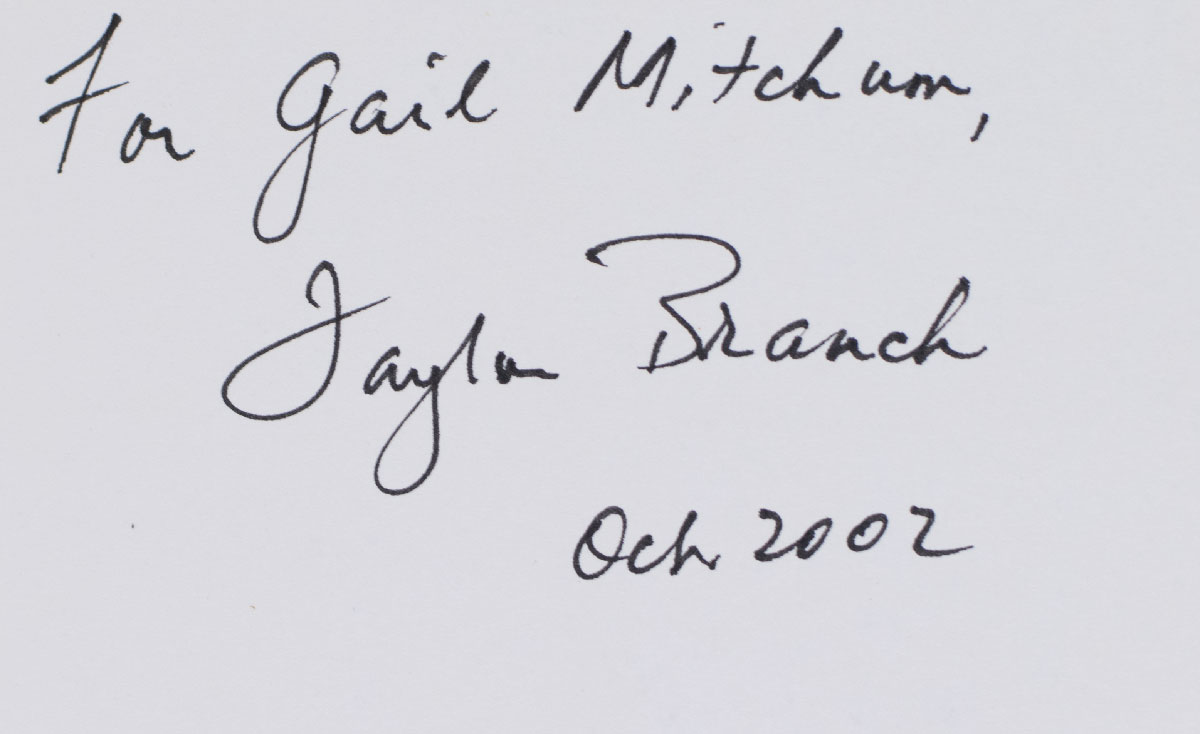 For Gail Mitchum,
Taylor Branch
Oct 2002